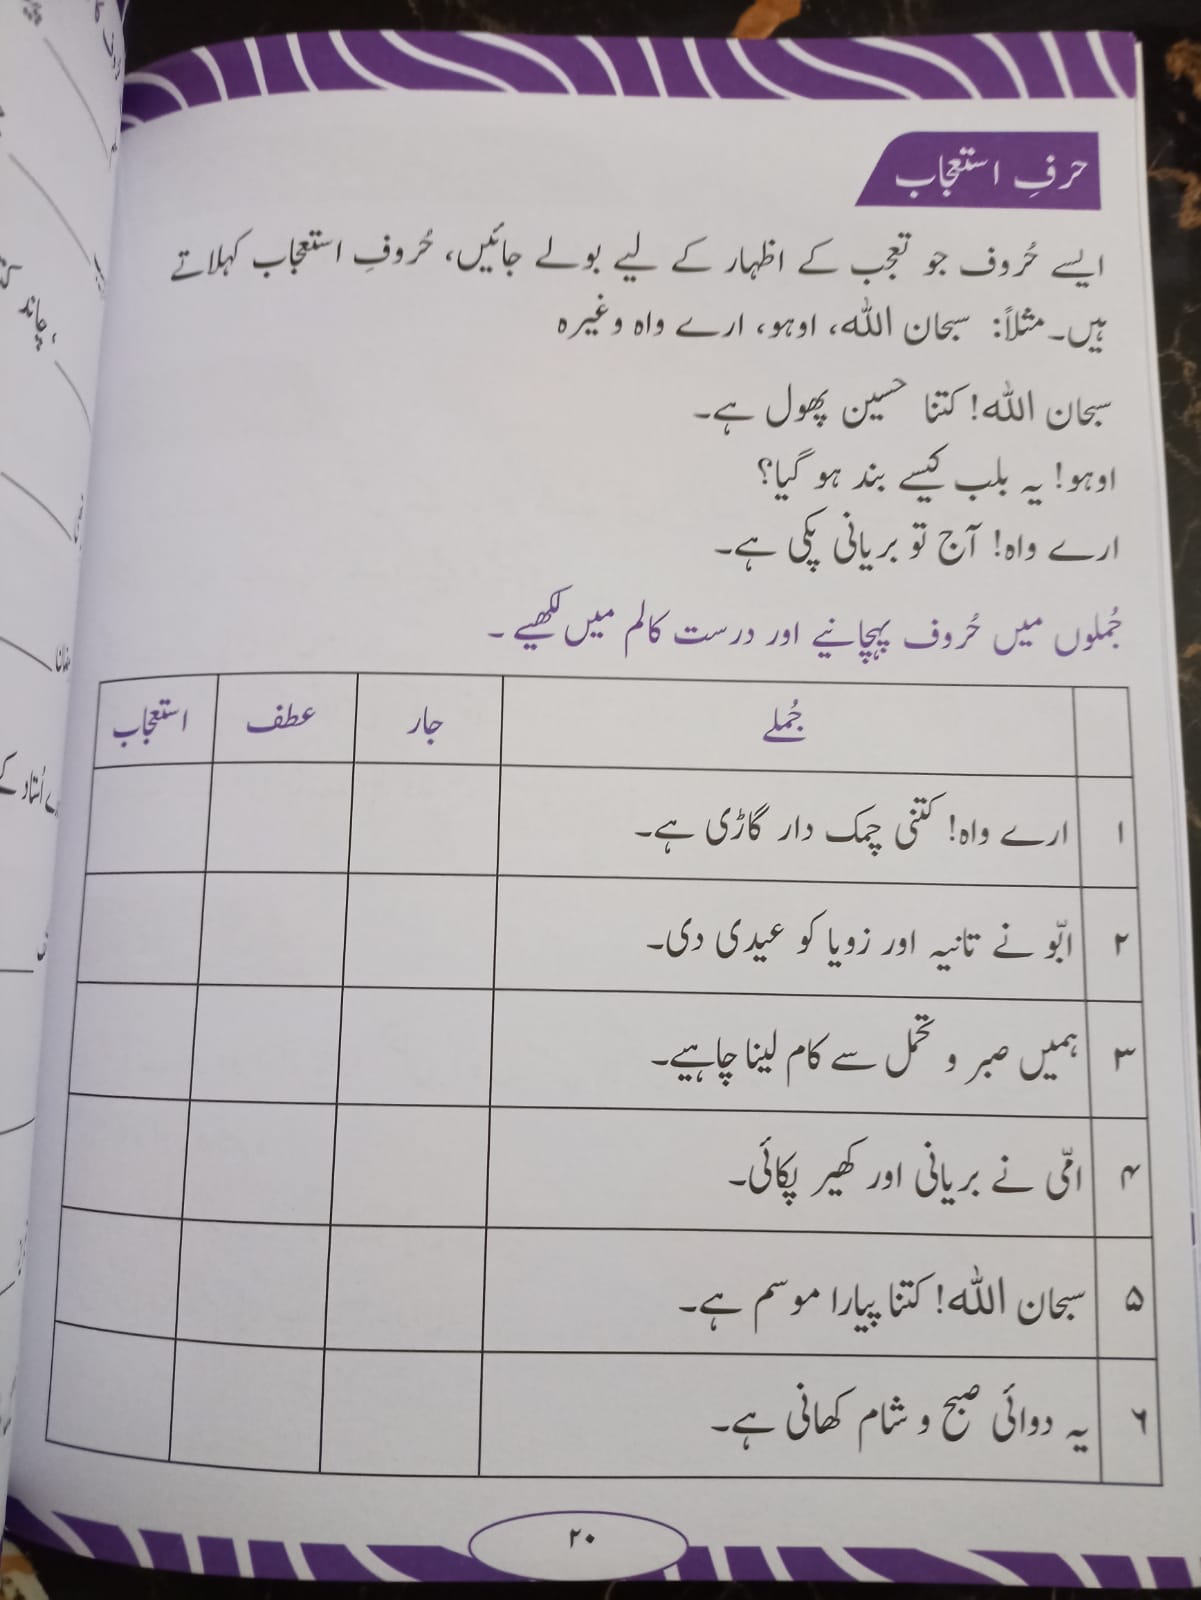 حرفِ استعجاب
ایسے حُروف جو تعجب کے اظہار کے لیے بولے جائیں، حُروفِ استعجاب کہلاتے
ہیں۔ مثلاً: سبحان اللہ، اوہو، ارے واہ وغیرہ
سبحان اللہ! کتنا حسین پھول ہے۔
اوہو! یہ بلب کیسے بند ہو گیا؟
ارے واہ! آج تو بریانی پکی ہے۔
جُملوں میں حُروف پہچانیے اور درست کالم میں لکھیے۔
جُملے جار عطف استعجاب
۱ ارے واہ! کتنی چمک دار گاڑی ہے۔
۲ ابّو نے تانیہ اور زویا کو عیدی دی۔
۳ ہمیں صبر و تحمل سے کام لینا چاہیے۔
۴ امّی نے بریانی اور کھیر پکائی۔
۵ سبحان اللہ! کتنا پیارا موسم ہے۔
۶ یہ دوائی صبح و شام کھانی ہے۔
۲۰
چاند